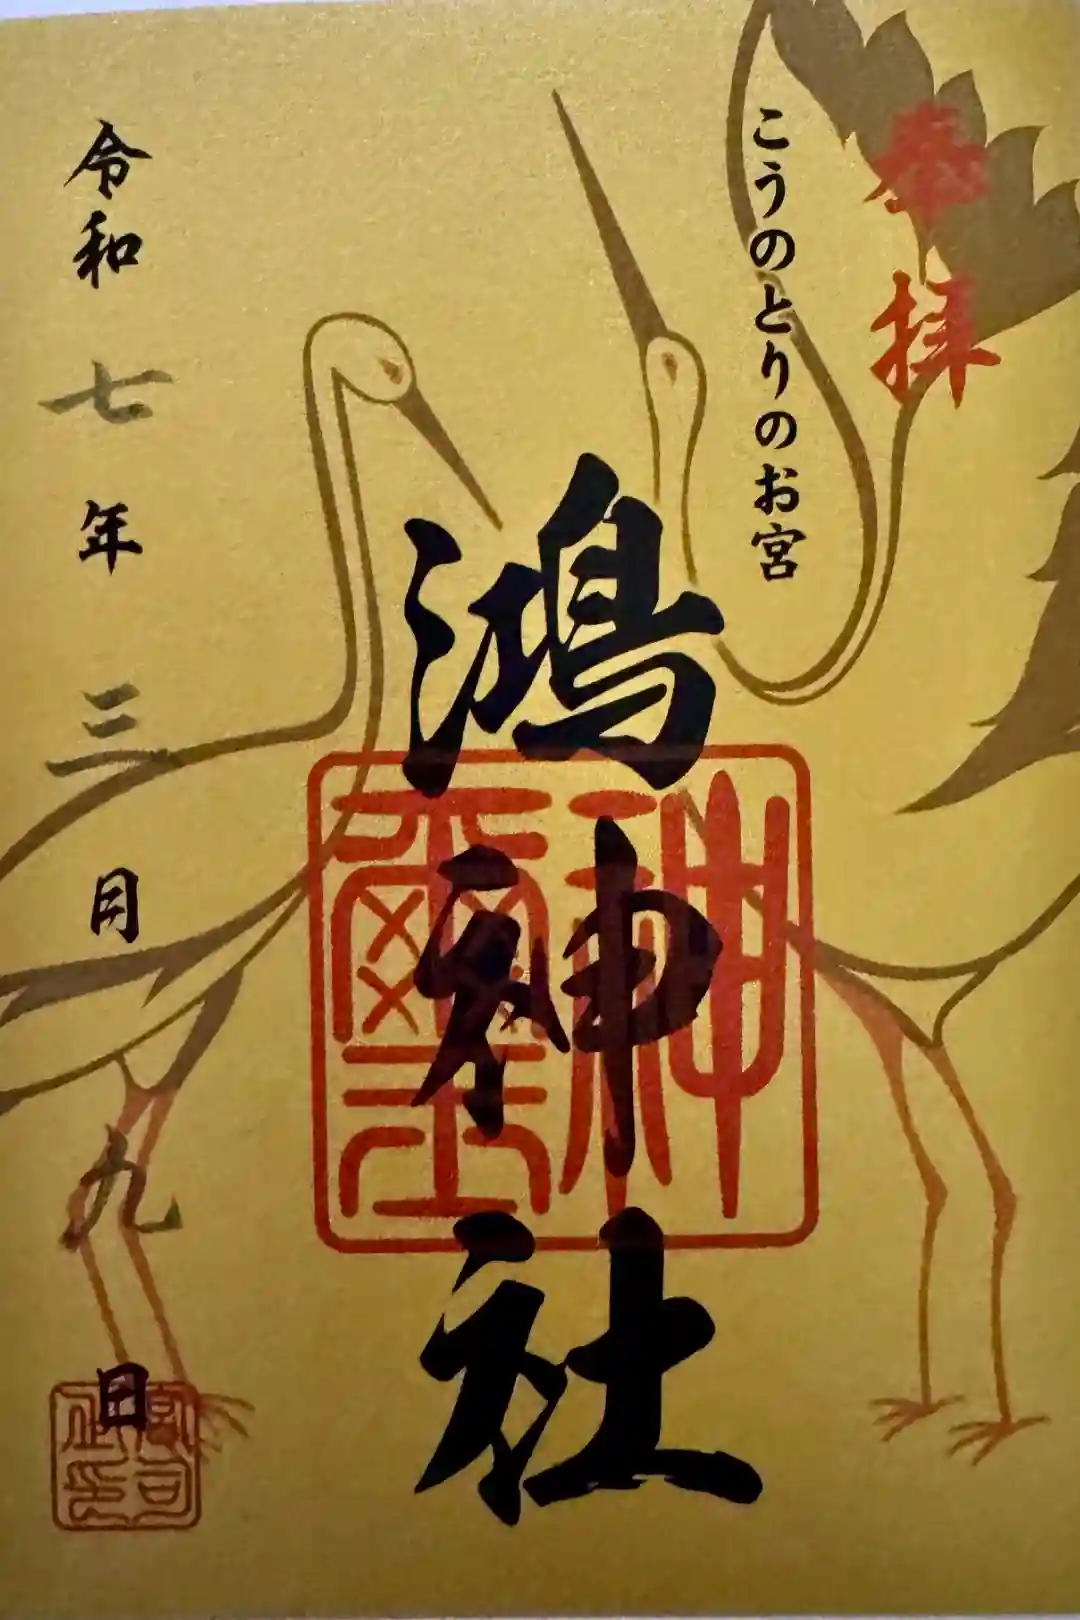 奉拝
こうのとりのお宮
鴻神社
神璽
令和七年三月九日
宮司之印